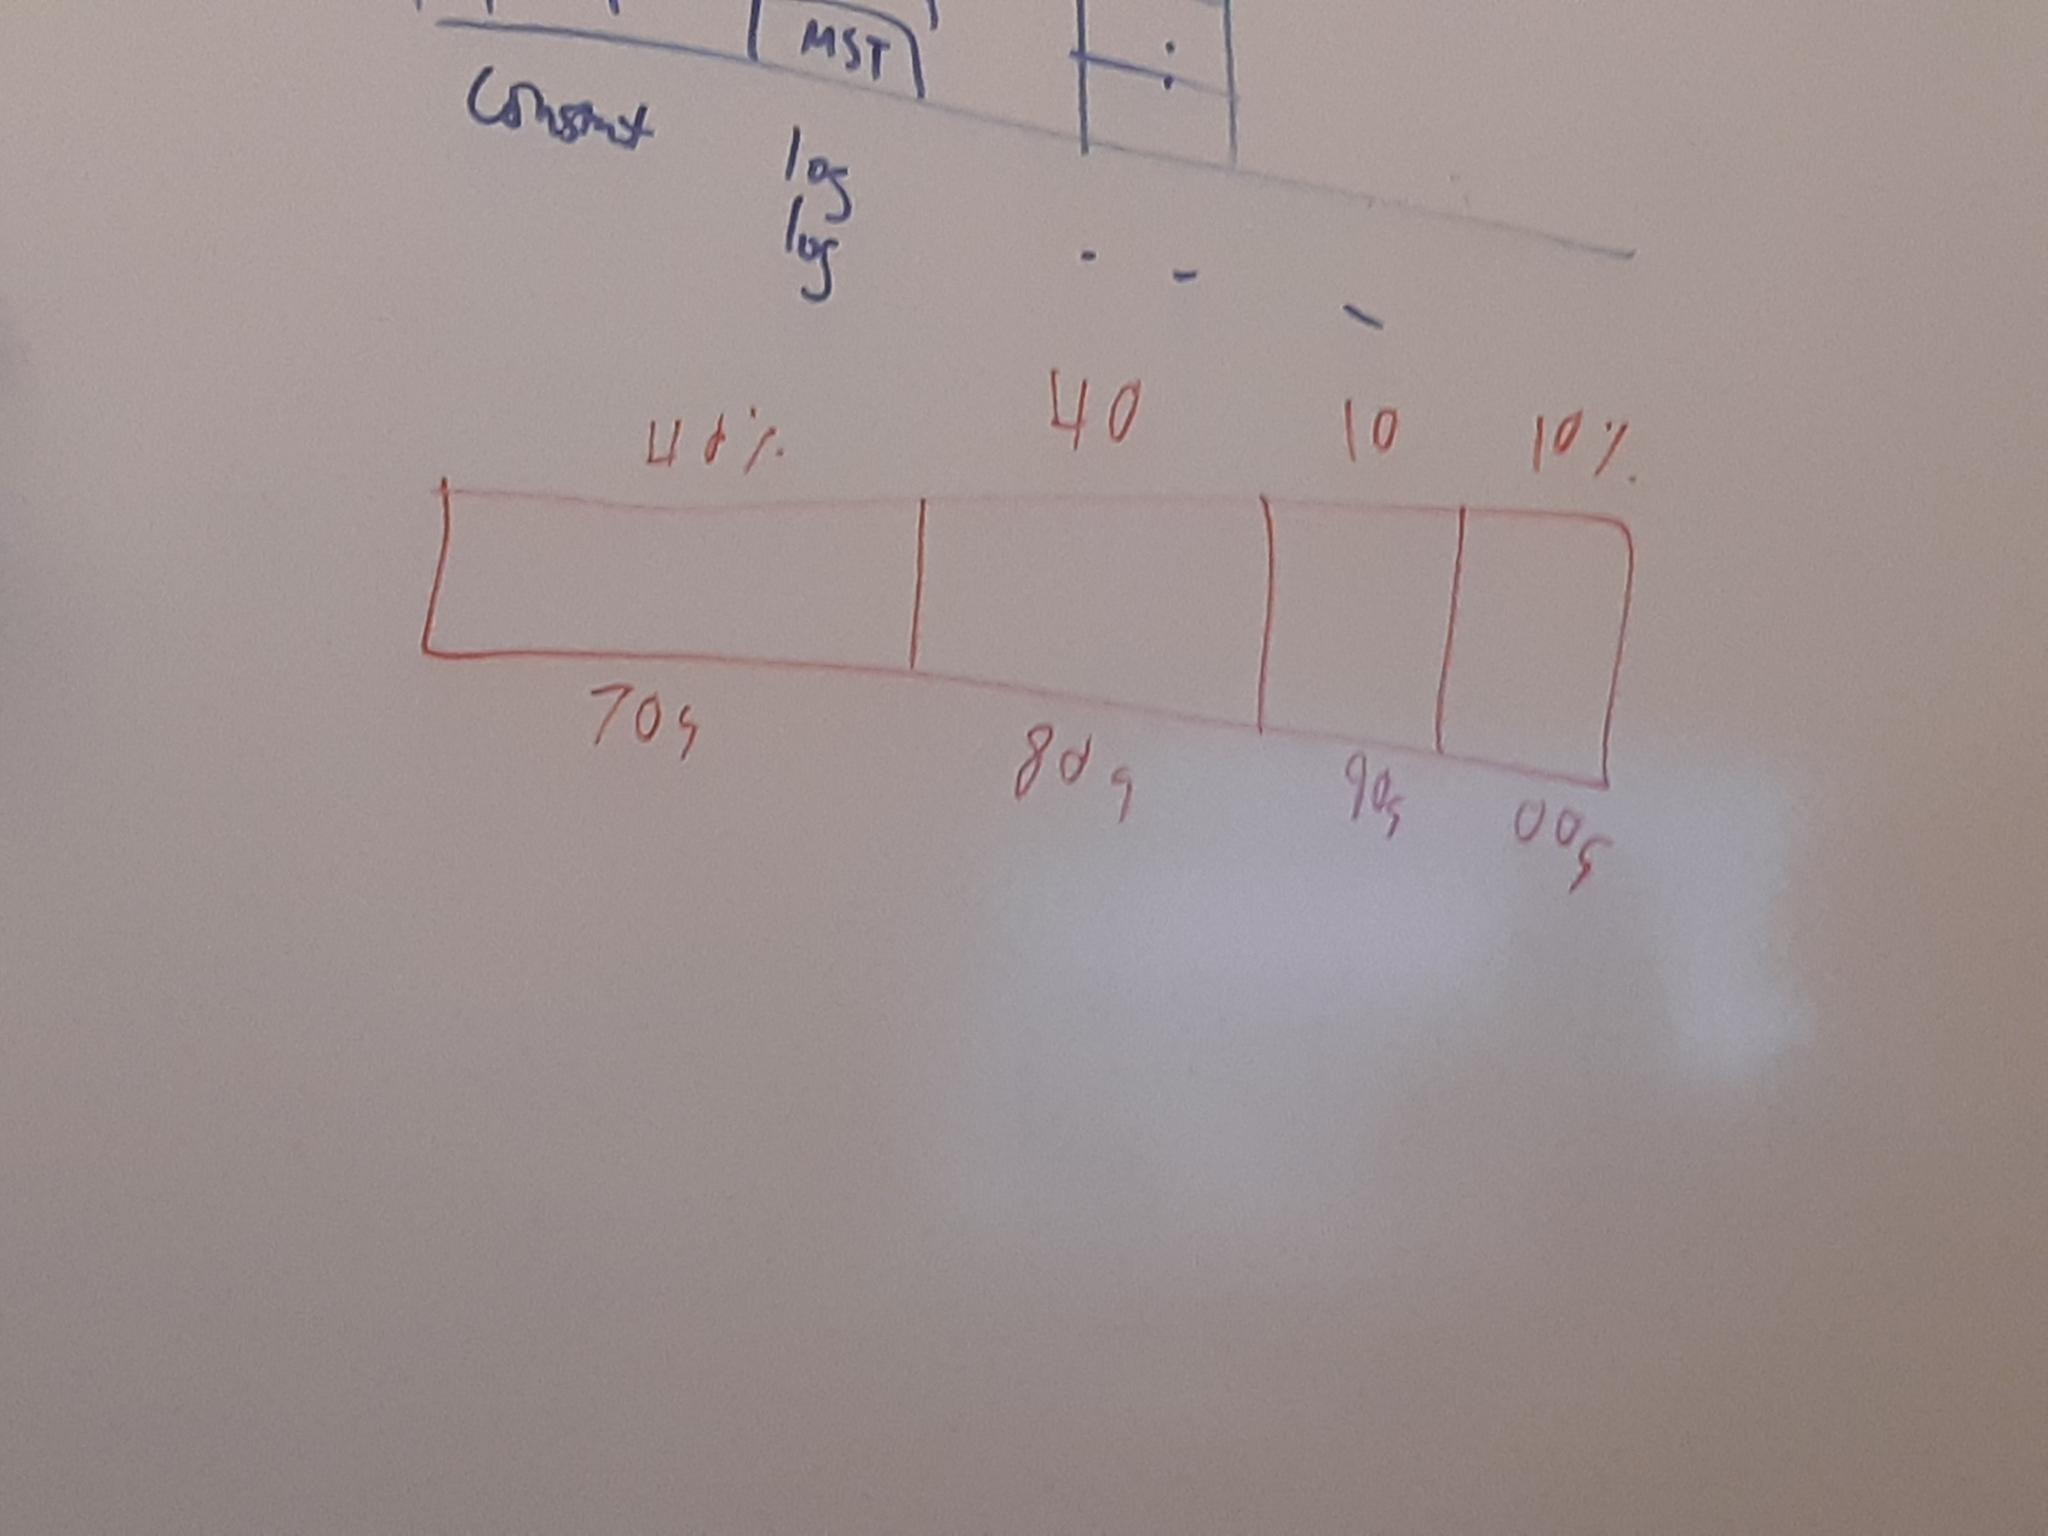 MST
Constnt
log
log
40% 40 10 10%
70s 80s 90s 00s